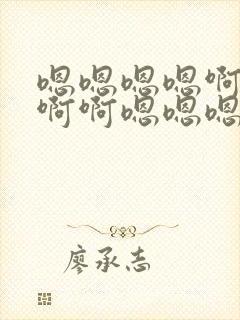 嗯嗯嗯嗯啊
啊啊嗯嗯嗯
廖承志